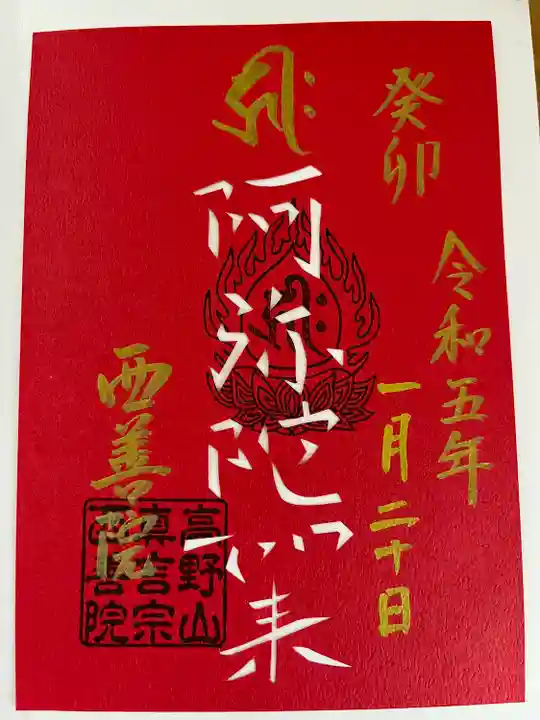 癸卯
令和五年
一月二十日
𑖮𑖿𑖨𑖱𑖾
阿弥陀如来
西善院
高野山
真言宗
西善院